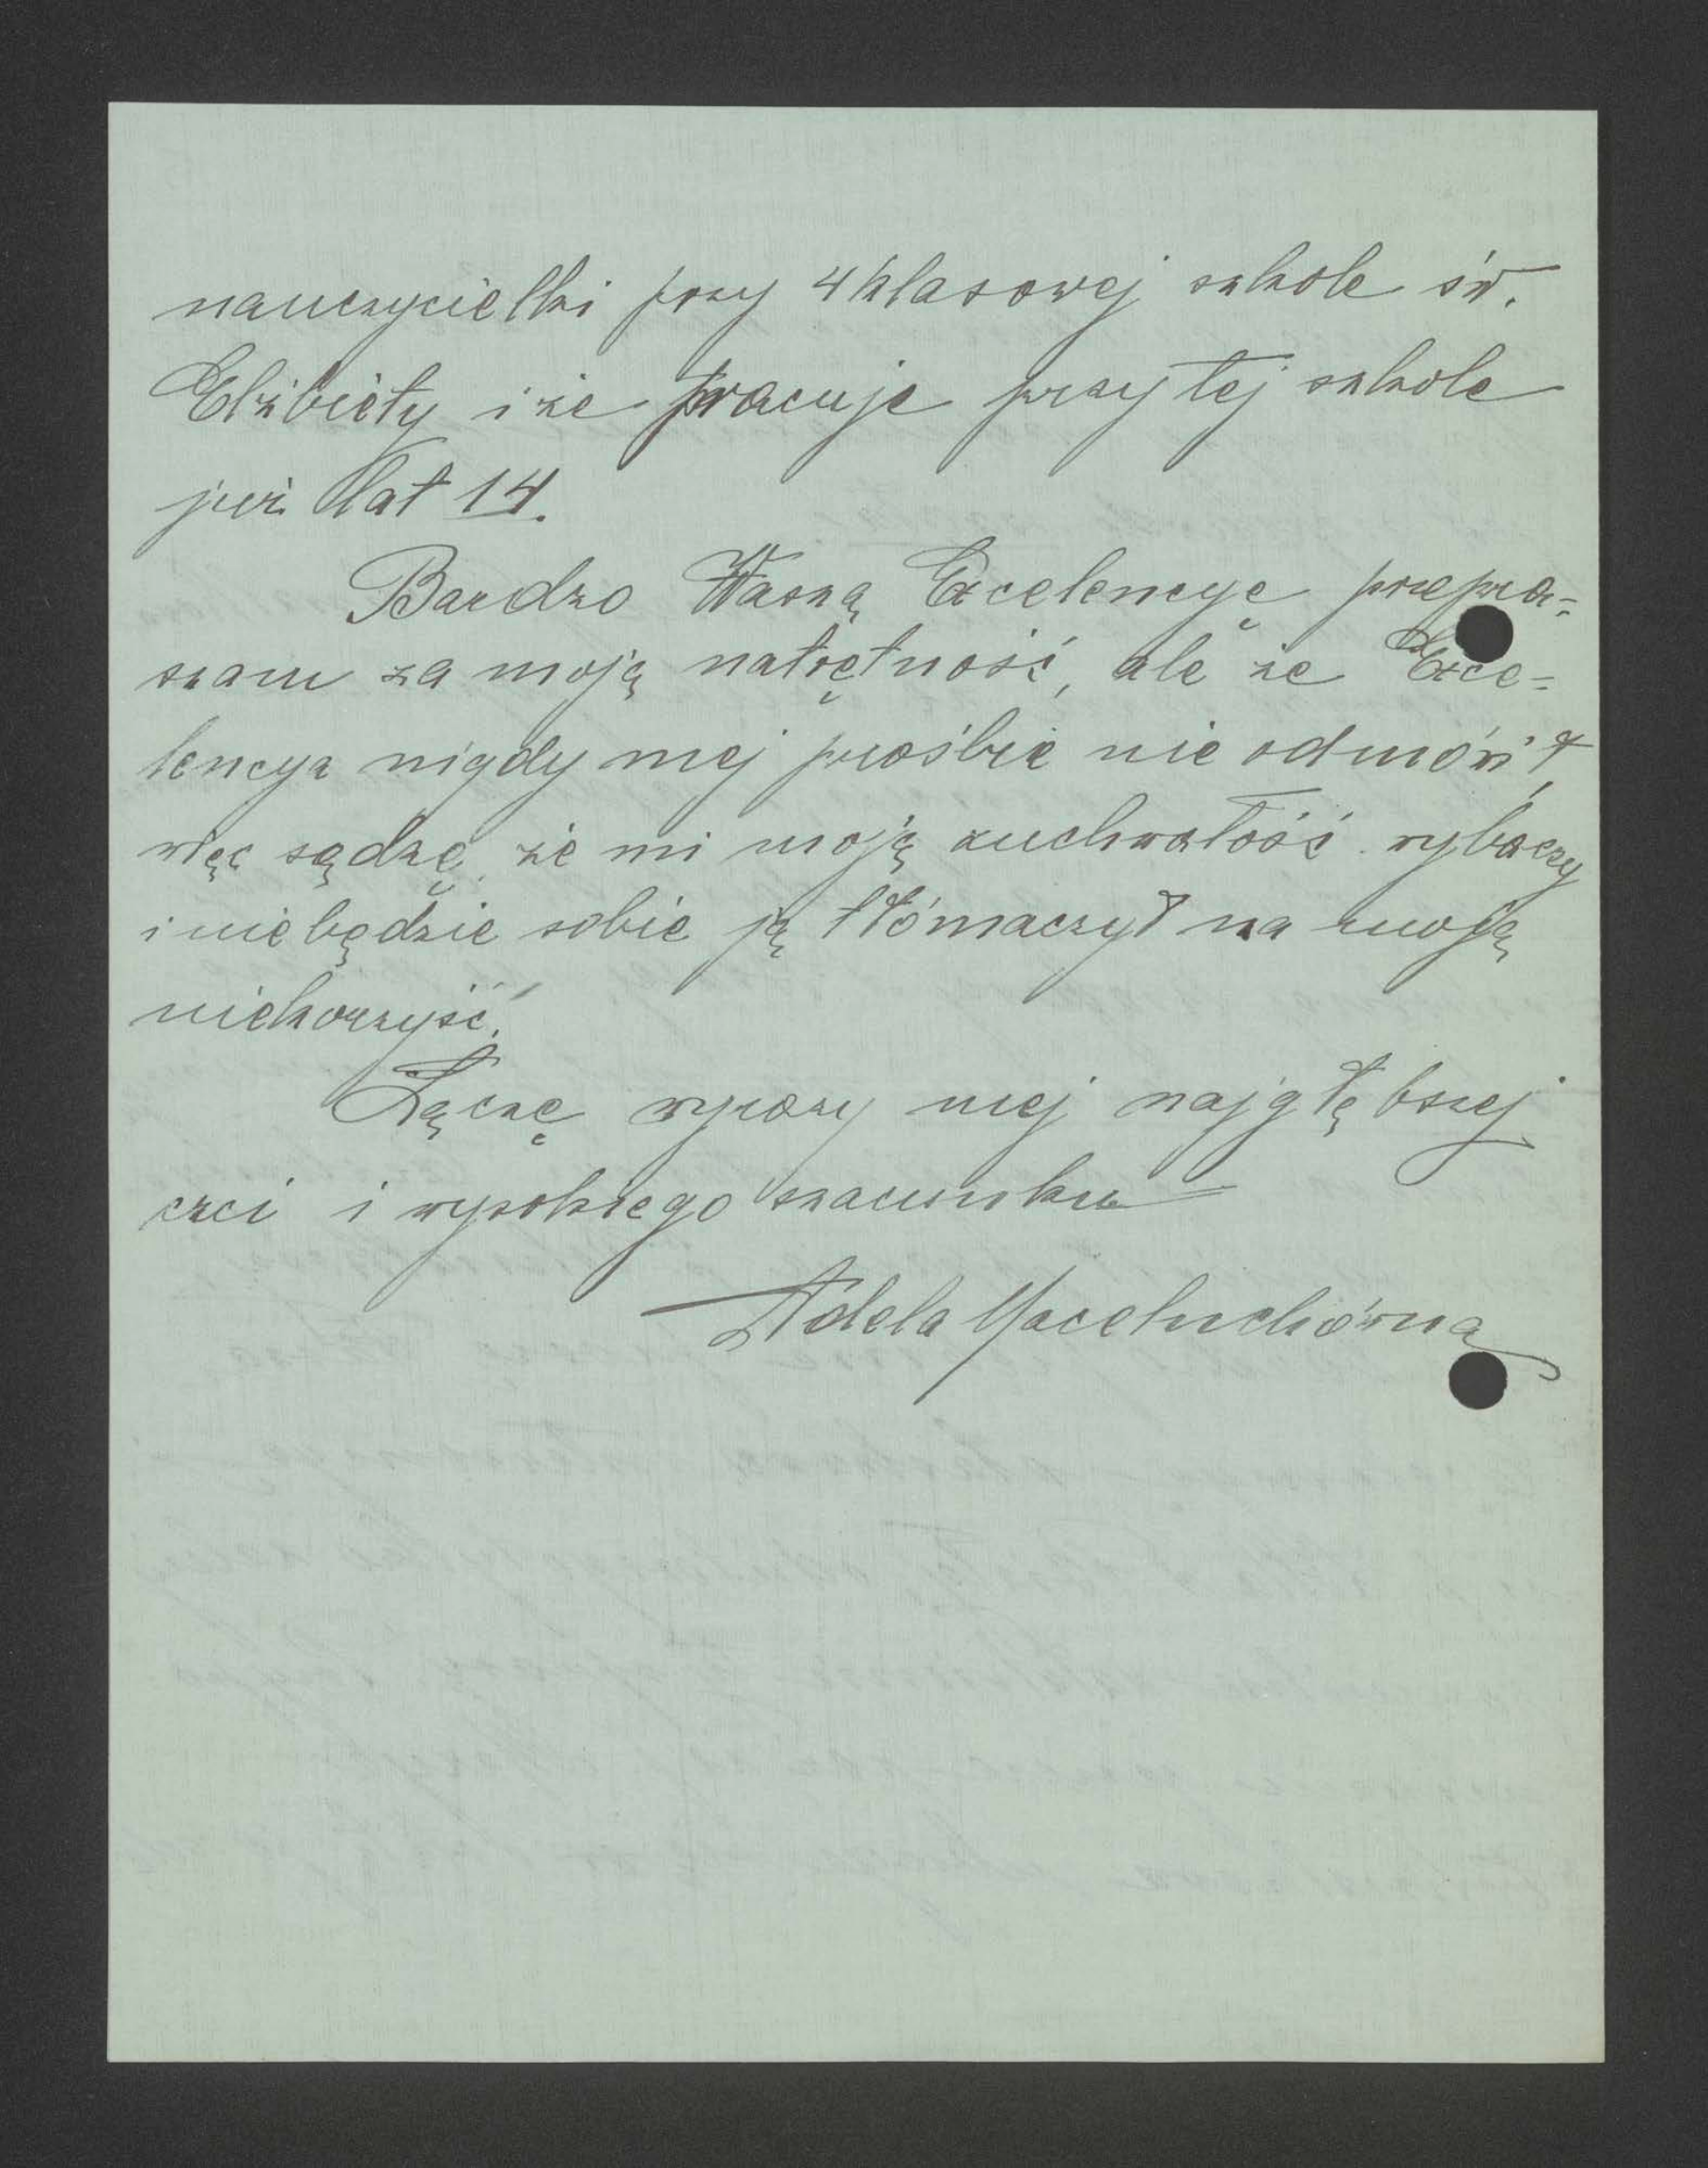 nauczycielki przy 4 klasowej szkole św.
Elżbiety i że pracuje przy tej szkole
już lat 14.
Bardzo Waszą Excelencyę przepra=
szam za moją natrętność, ale że Exce=
lencya nigdy mej prośbie nie odmówił,
więc sądzę, że mi moją zuchwałość wybaczy
i nie będzie sobie ją tłómaczył na moją
niekorzyść.
Łączę wyrazy mej najgłębszej
czci i wysokiego szacunku
Adela